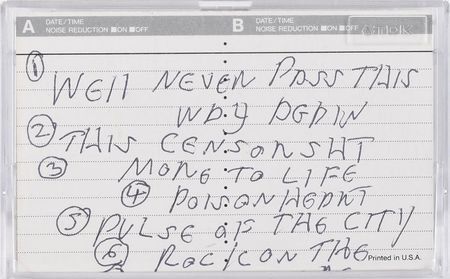 A DATE/TIME B DATE/TIME
NOISE REDUCTION ON OFF NOISE REDUCTION ON OFF
① WEll NEVER PASS THIS
WAY AGAIN
② THIS CENSORSHT
③ MORE TO LIFE
④ POISON HEART
⑤ PULSE OF THE CITY
⑥ ROC/C ON THE
Printed in U.S.A.